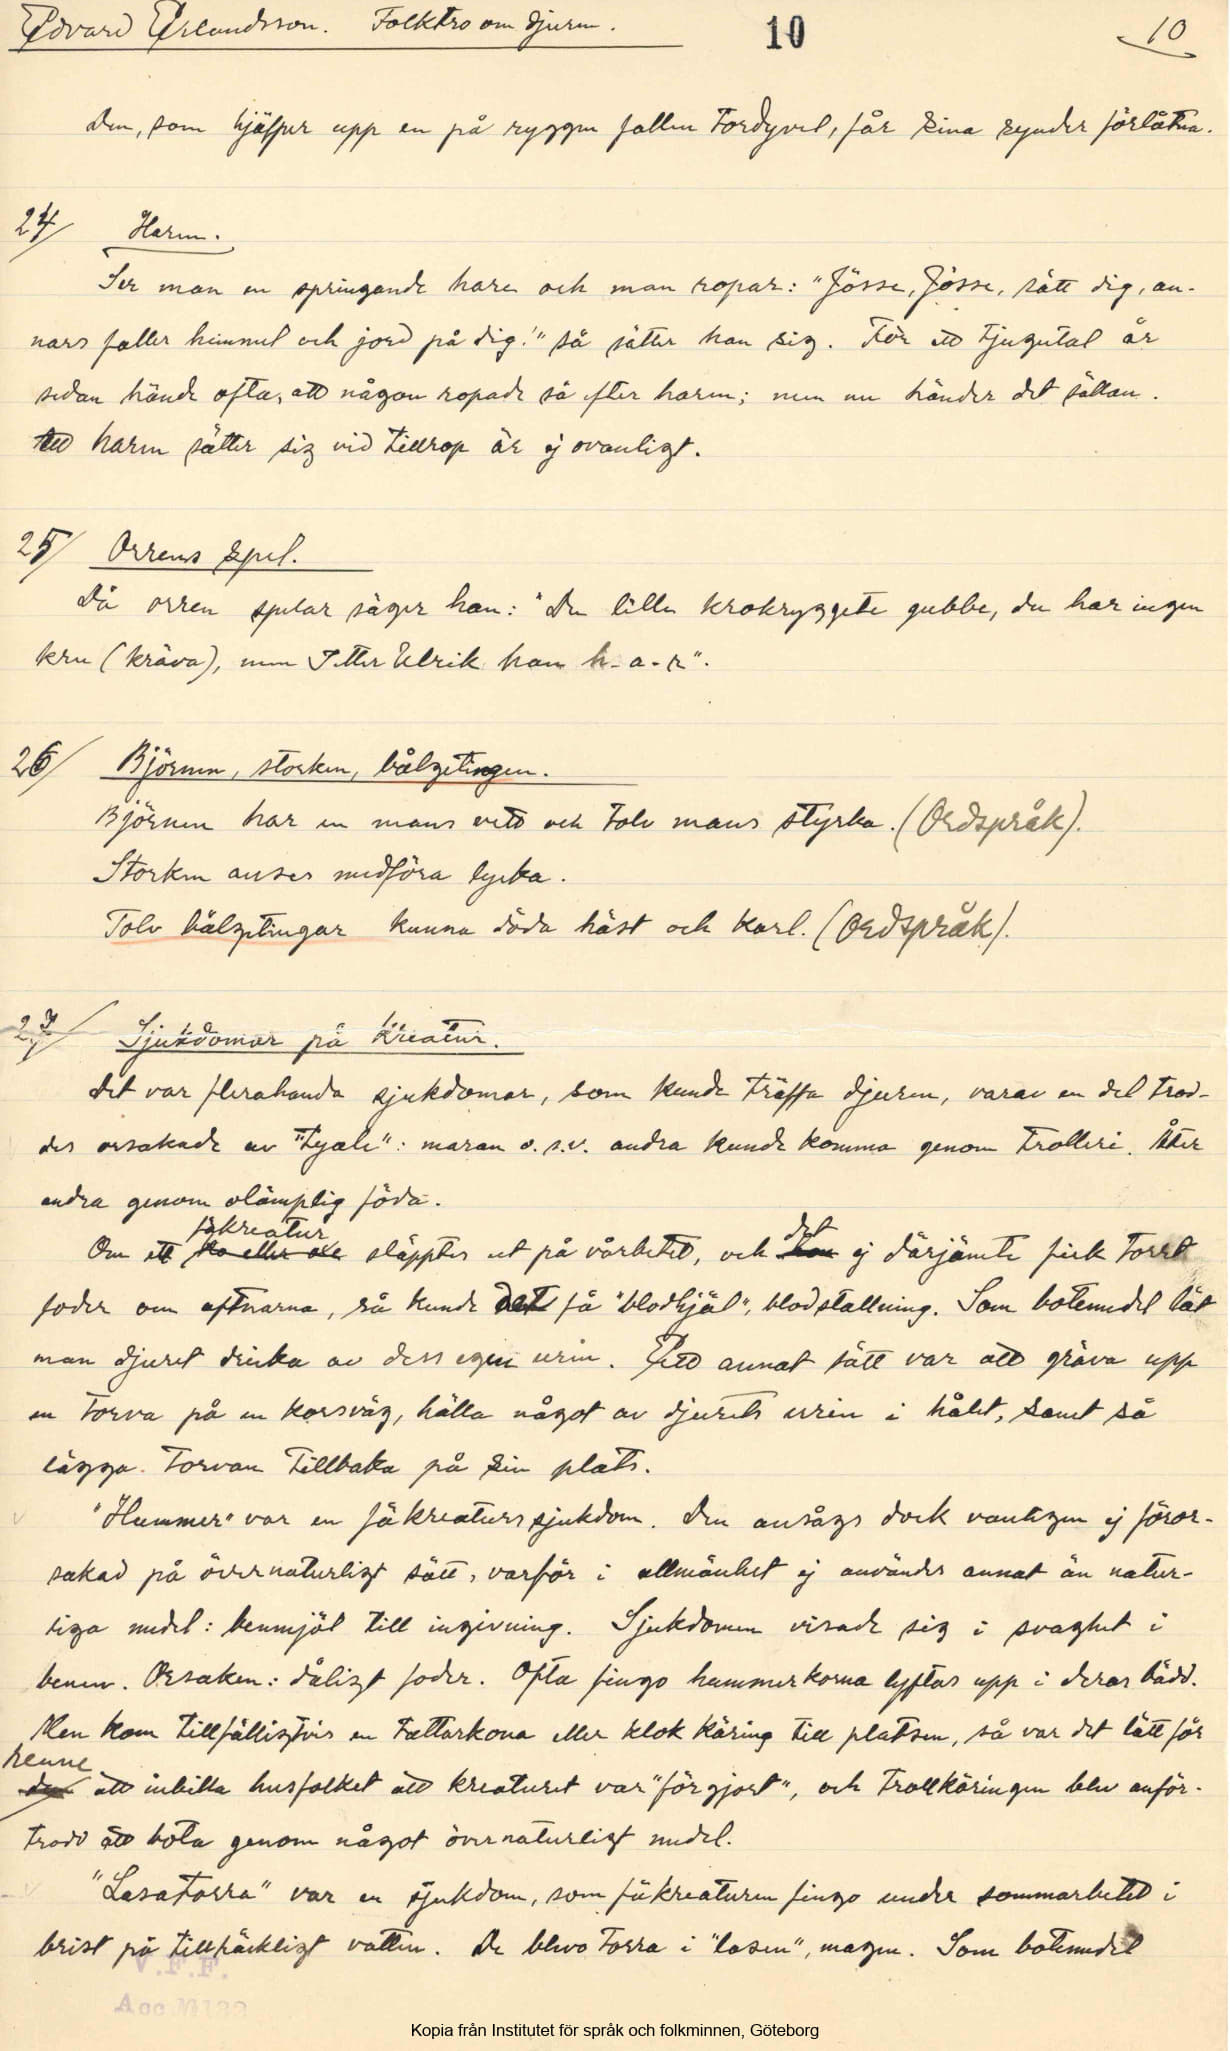 Edvard Erlandsson. Folktro om djuren. 10 10
Den, som hjälper upp en på ryggen fallen tordyvel, får sina synder förlåtna.
24/ Haren.
Ser man en springande hare och man ropar: "Jösse, Jösse, sätt dig, an-
nars faller himmel och jord på dig!" så sätter han sig. För ett tjugutal år
sedan hände ofta, att någon ropade så efter haren; men nu händer det sällan.
Att haren sätter sig vid tillrop är ej ovanligt.
25/ Orrens spel.
Då orren spelar säger han: "Du lille krokryggete gubbe, du har ingen
kru (kräva), men Petter Ulrik han h-a-r".
26/ Björnen, storken, bålgetingen.
Björnen har en mans vett och tolv mans styrka. (Ordspråk).
Storken anses medföra lycka.
Tolv bålgetingar kunna döda häst och karl. (Ordspråk).
27/ Sjukdomar på kreatur.
Det var flerahanda sjukdomar, som kunde träffa djuren, varav en del trod-
des orsakade av "tyale": maran o.s.v. andra kunde komma genom trolleri. Åter
andra genom olämplig föda.
fäkreatur det
Om ett ko eller oxe släpptes ut på vårbetet, och hon ej därjämte fick torrt
foder om aftnarna, så kunde det få "blodkjäl", blodstallning. Som botemedel lät
man djuret dricka av dess egen urin. Ett annat sätt var att gräva upp
en torva på en korsväg, hälla något av djurets urin i hålet, samt så
lägga torvan tillbaka på sin plats.
"Hummer" var en fäkreaturssjukdom. Den ansågs dock vanligen ej föror-
sakad på övernaturligt sätt, varför i allmänhet ej användes annat än natur-
liga medel: benmjöl till ingivning. Sjukdomen visade sig i svaghet i
benen. Orsaken: dåligt foder. Ofta fingo hummerkorna lyftas upp i deras bådd.
Men kom tillfälligtvis en tattarkona eller klok käring till platsen, så var det lätt för
henne
den att inbilla husfolket att kreaturet var "förgjort", och trollkäringen blev anför-
trodd att bota genom något övernaturligt medel.
"Lasatorra" var en sjukdom, som fäkreaturen fingo under sommarbetet i
brist på tillräckligt vatten. De blevo torra i "lasen", magen. Som botemedel
V.F.F.
Acc M133
Kopia från Institutet för språk och folkminnen, Göteborg